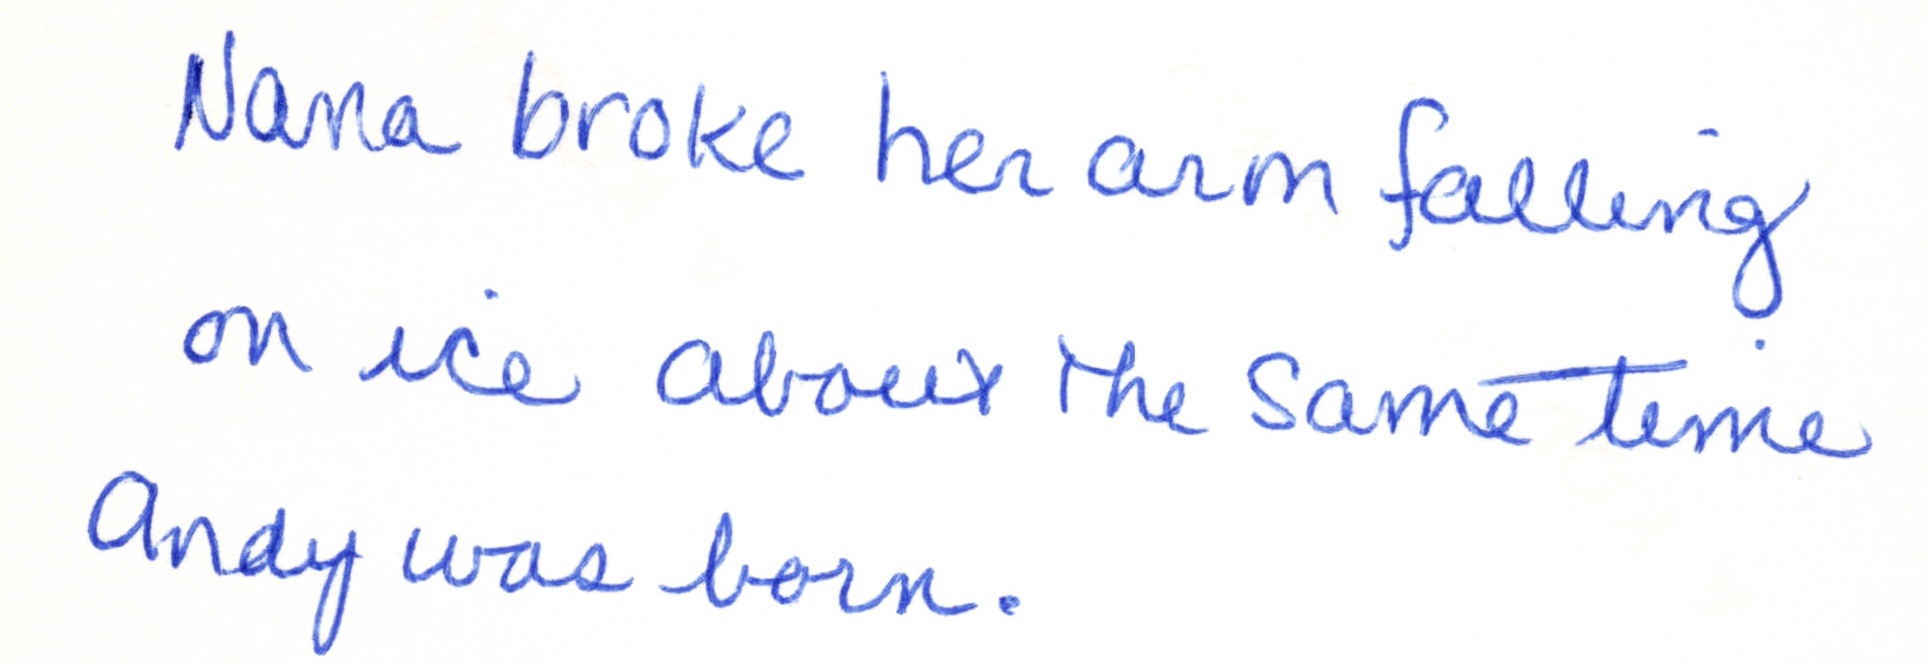 Nana broke her arm falling
on ice about the same time
Andy was born.